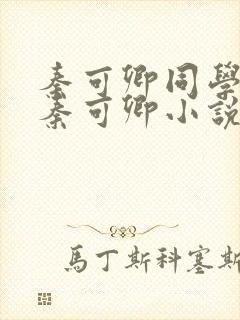 秦可卿同學
秦可卿小說
馬丁斯科塞斯